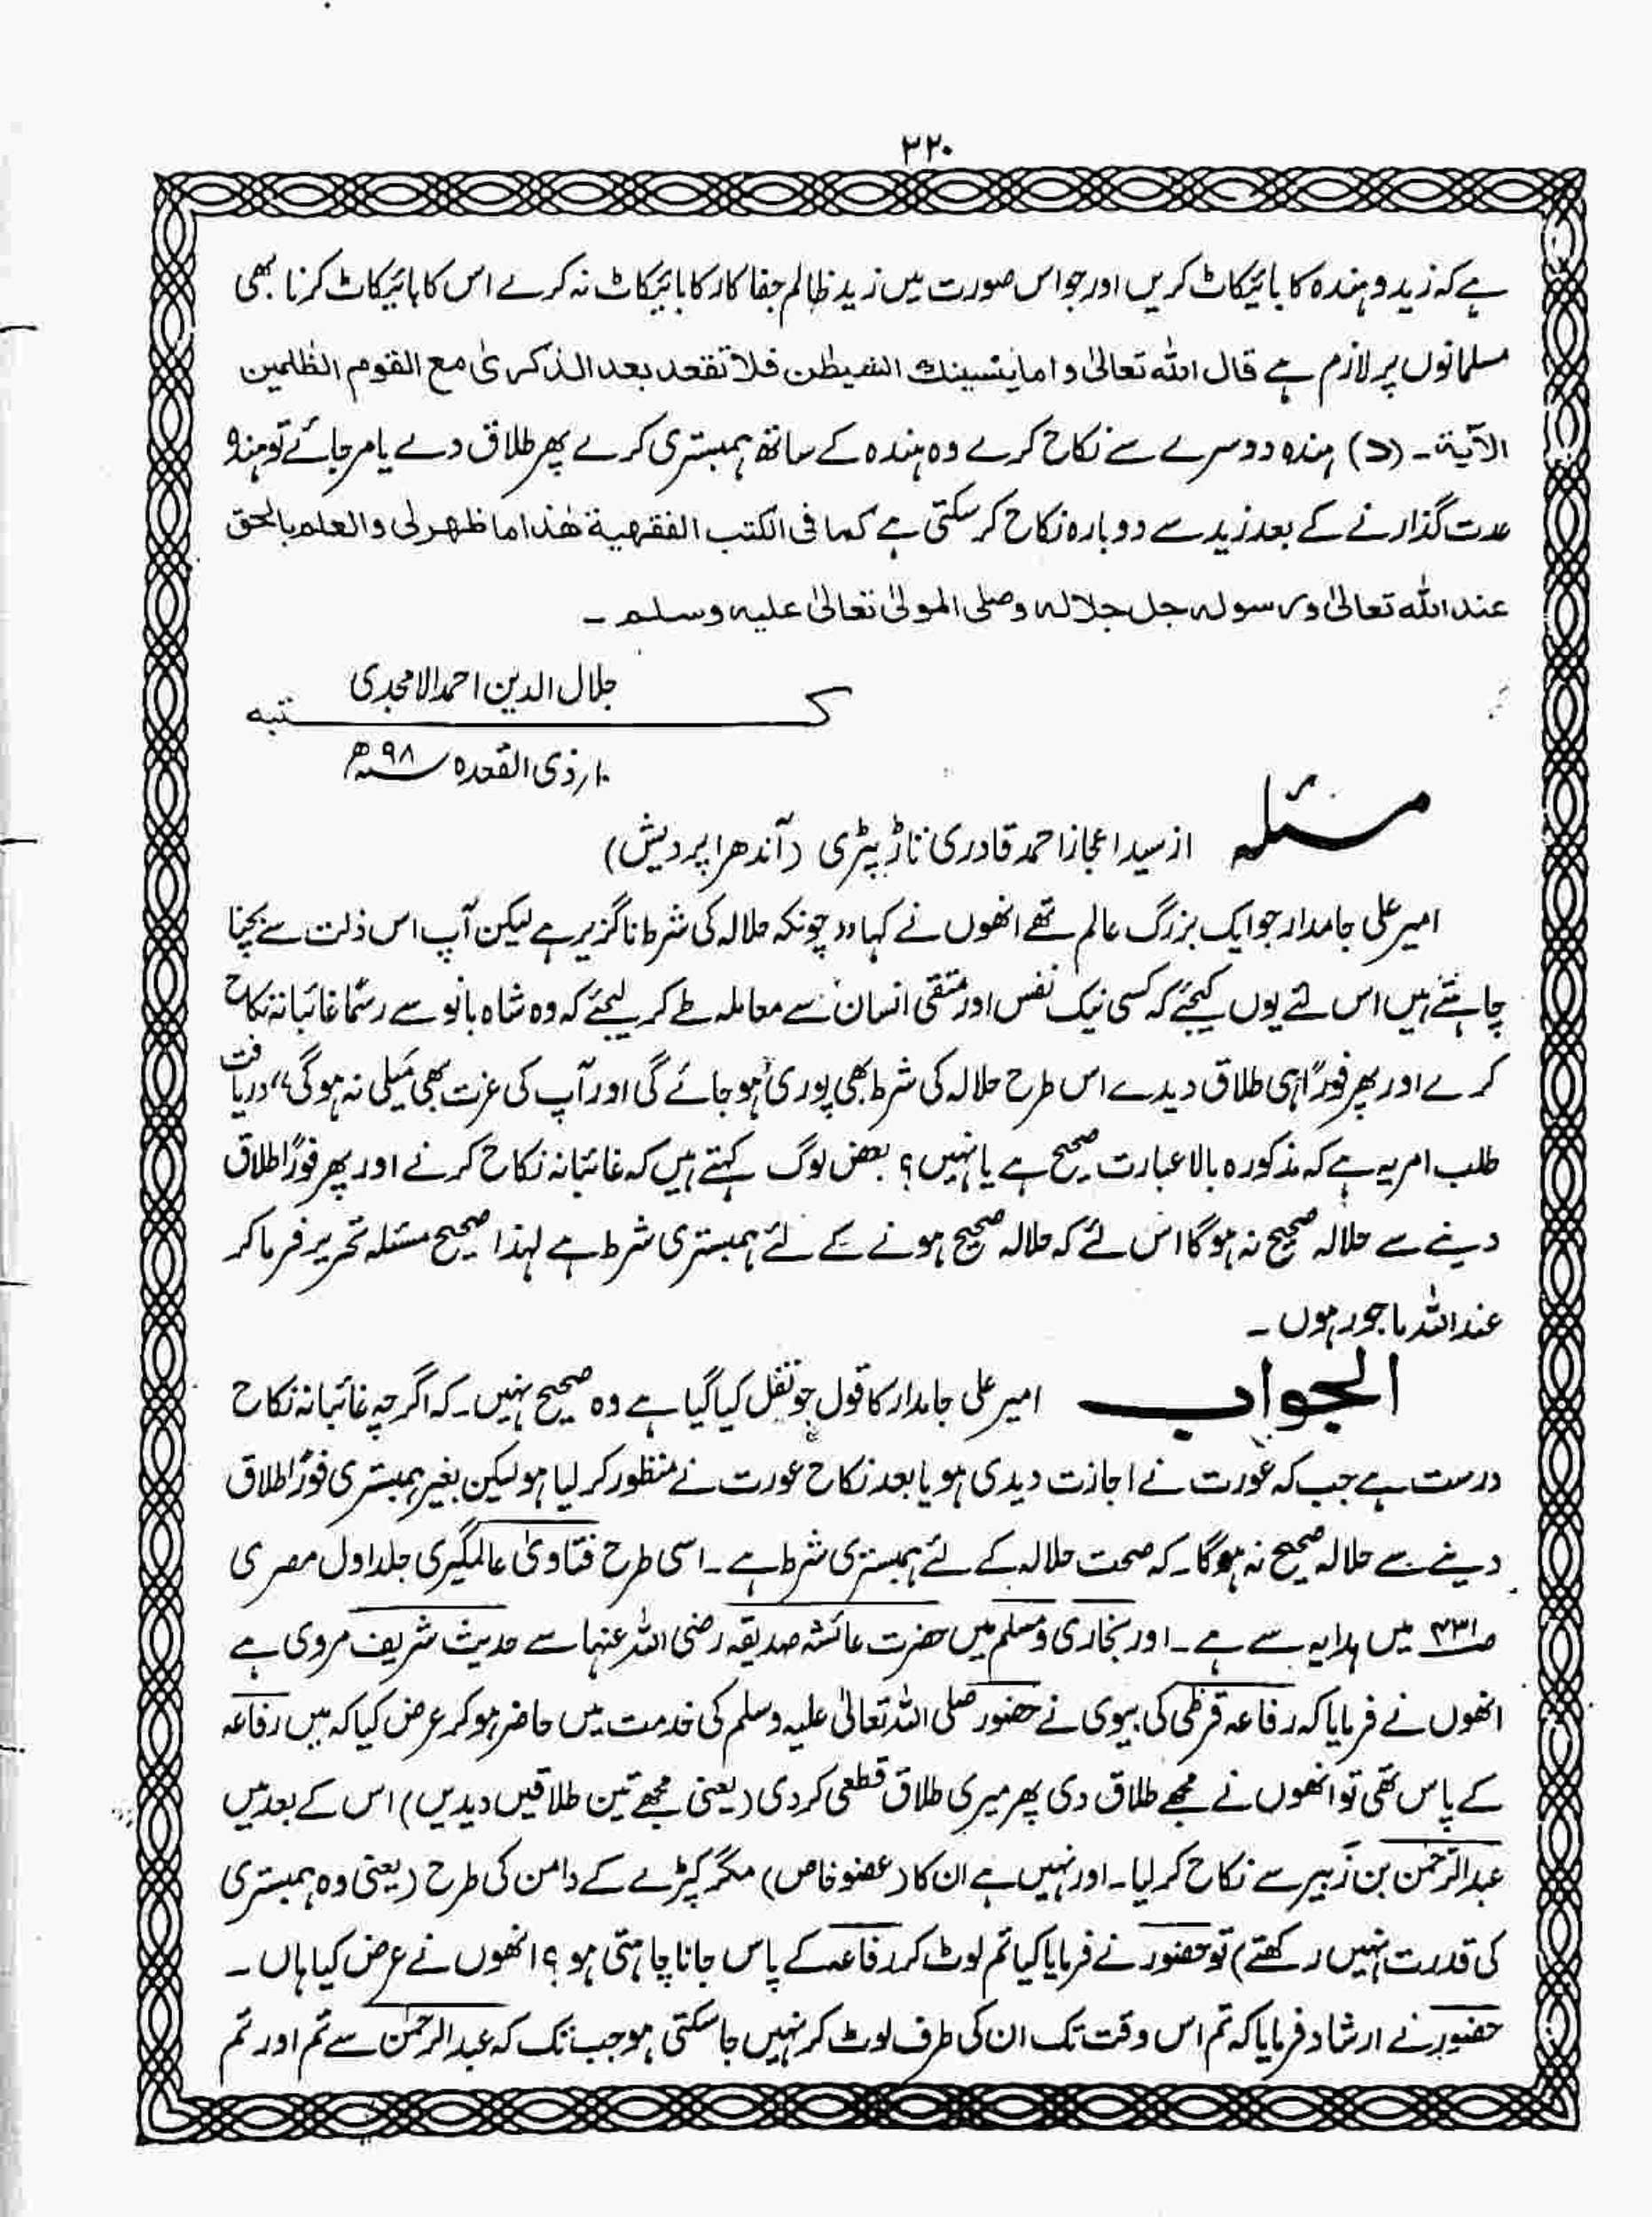 ۳۲۰
ہے کہ زید و ہندہ کا بائیکاٹ کریں اور جو اس صورت میں زید ظالم جفا کار کا بائیکاٹ نہ کرے اس کا بائیکاٹ کرنا بھی
مسلمانوں پر لازم ہے قال اللہ تعالیٰ و اما ینسینك الشیطٰن فلا تقعد بعد الذکریٰ مع القوم الظٰلمین
الآیۃ۔ (د) ہندہ دوسرے سے نکاح کرے وہ ہندہ کے ساتھ ہمبستری کرے پھر طلاق دے یا مر جائے تو ہندہ
عدت گذارنے کے بعد زید سے دوبارہ نکاح کر سکتی ہے کما فی الکتب الفقہیۃ ھٰذا ما ظھر لی والعلم بالحق
عند اللہ تعالیٰ و رسولہ جل جلالہ وصلی المولیٰ تعالیٰ علیہ وسلم ۔
جلال الدین احمد الامجدی
کتبہ
۱۰؍ ذی القعدہ سنہ ۹۸ھ
مسئلہ از سید اعجاز احمد قادری تاڑپتری (آندھرا پردیش)
امیر علی جامدار جو ایک بزرگ عالم تھے انھوں نے کہا ,, چونکہ حلالہ کی شرط ناگزیر ہے لیکن آپ اس ذلت سے بچنا
چاہتے ہیں اس لئے یوں کیجئے کہ کسی نیک نفس اور متقی انسان سے معاملہ طے کر لیجئے کہ وہ شاہ بانو سے رسمًا غائبانہ نکاح
کرے اور پھر فورًا ہی طلاق دیدے اس طرح حلالہ کی شرط بھی پوری ہو جائے گی اور آپ کی عزت بھی میلی نہ ہوگی،، دریافت
طلب امر یہ ہے کہ مذکورہ بالا عبارت صحیح ہے یا نہیں؟ بعض لوگ کہتے ہیں کہ غائبانہ نکاح کرنے اور پھر فورًا طلاق
دینے سے حلالہ صحیح نہ ہوگا اس لئے کہ حلالہ صحیح ہونے کے لئے ہمبستری شرط ہے لہذا صحیح مسئلہ تحریر فرما کر
عند اللہ ماجور ہوں ۔
الجواب امیر علی جامدار کا قول جو نقل کیا گیا ہے وہ صحیح نہیں۔ کہ اگرچہ غائبانہ نکاح
درست ہے جب کہ عورت نے اجازت دیدی ہو یا بعد نکاح عورت نے منظور کر لیا ہو لیکن بغیر ہمبستری فورًا طلاق
دینے سے حلالہ صحیح نہ ہوگا۔ کہ صحت حلالہ کے لئے ہمبستری شرط ہے ۔ اسی طرح فتاویٰ عالمگیری جلد اول مصری
ص ۴۳۱ میں ہدایہ سے ہے ۔ اور بخاری و مسلم میں حضرت عائشہ صدیقہ رضی اللہ عنہا سے حدیث شریف مروی ہے
انھوں نے فرمایا کہ رفاعہ قرظی کی بیوی نے حضور صلی اللہ تعالیٰ علیہ وسلم کی خدمت میں حاضر ہو کر عرض کیا کہ میں رفاعہ
کے پاس تھی تو انھوں نے مجھے طلاق دی پھر میری طلاق قطعی کر دی (یعنی مجھے تین طلاقیں دیدیں) اس کے بعد میں
عبدالرحمٰن بن زَبیر سے نکاح کر لیا۔ اور نہیں ہے ان کا (عضو خاص) مگر کپڑے کے دامن کی طرح (یعنی وہ ہمبستری
کی قدرت نہیں رکھتے) تو حضور نے فرمایا کیا تم لوٹ کر رفاعہ کے پاس جانا چاہتی ہو؟ انھوں نے عرض کیا ہاں ۔
حضور نے ارشاد فرمایا کہ تم اس وقت تک ان کی طرف لوٹ کر نہیں جا سکتی ہو جب تک کہ عبدالرحمٰن سے تم اور تم